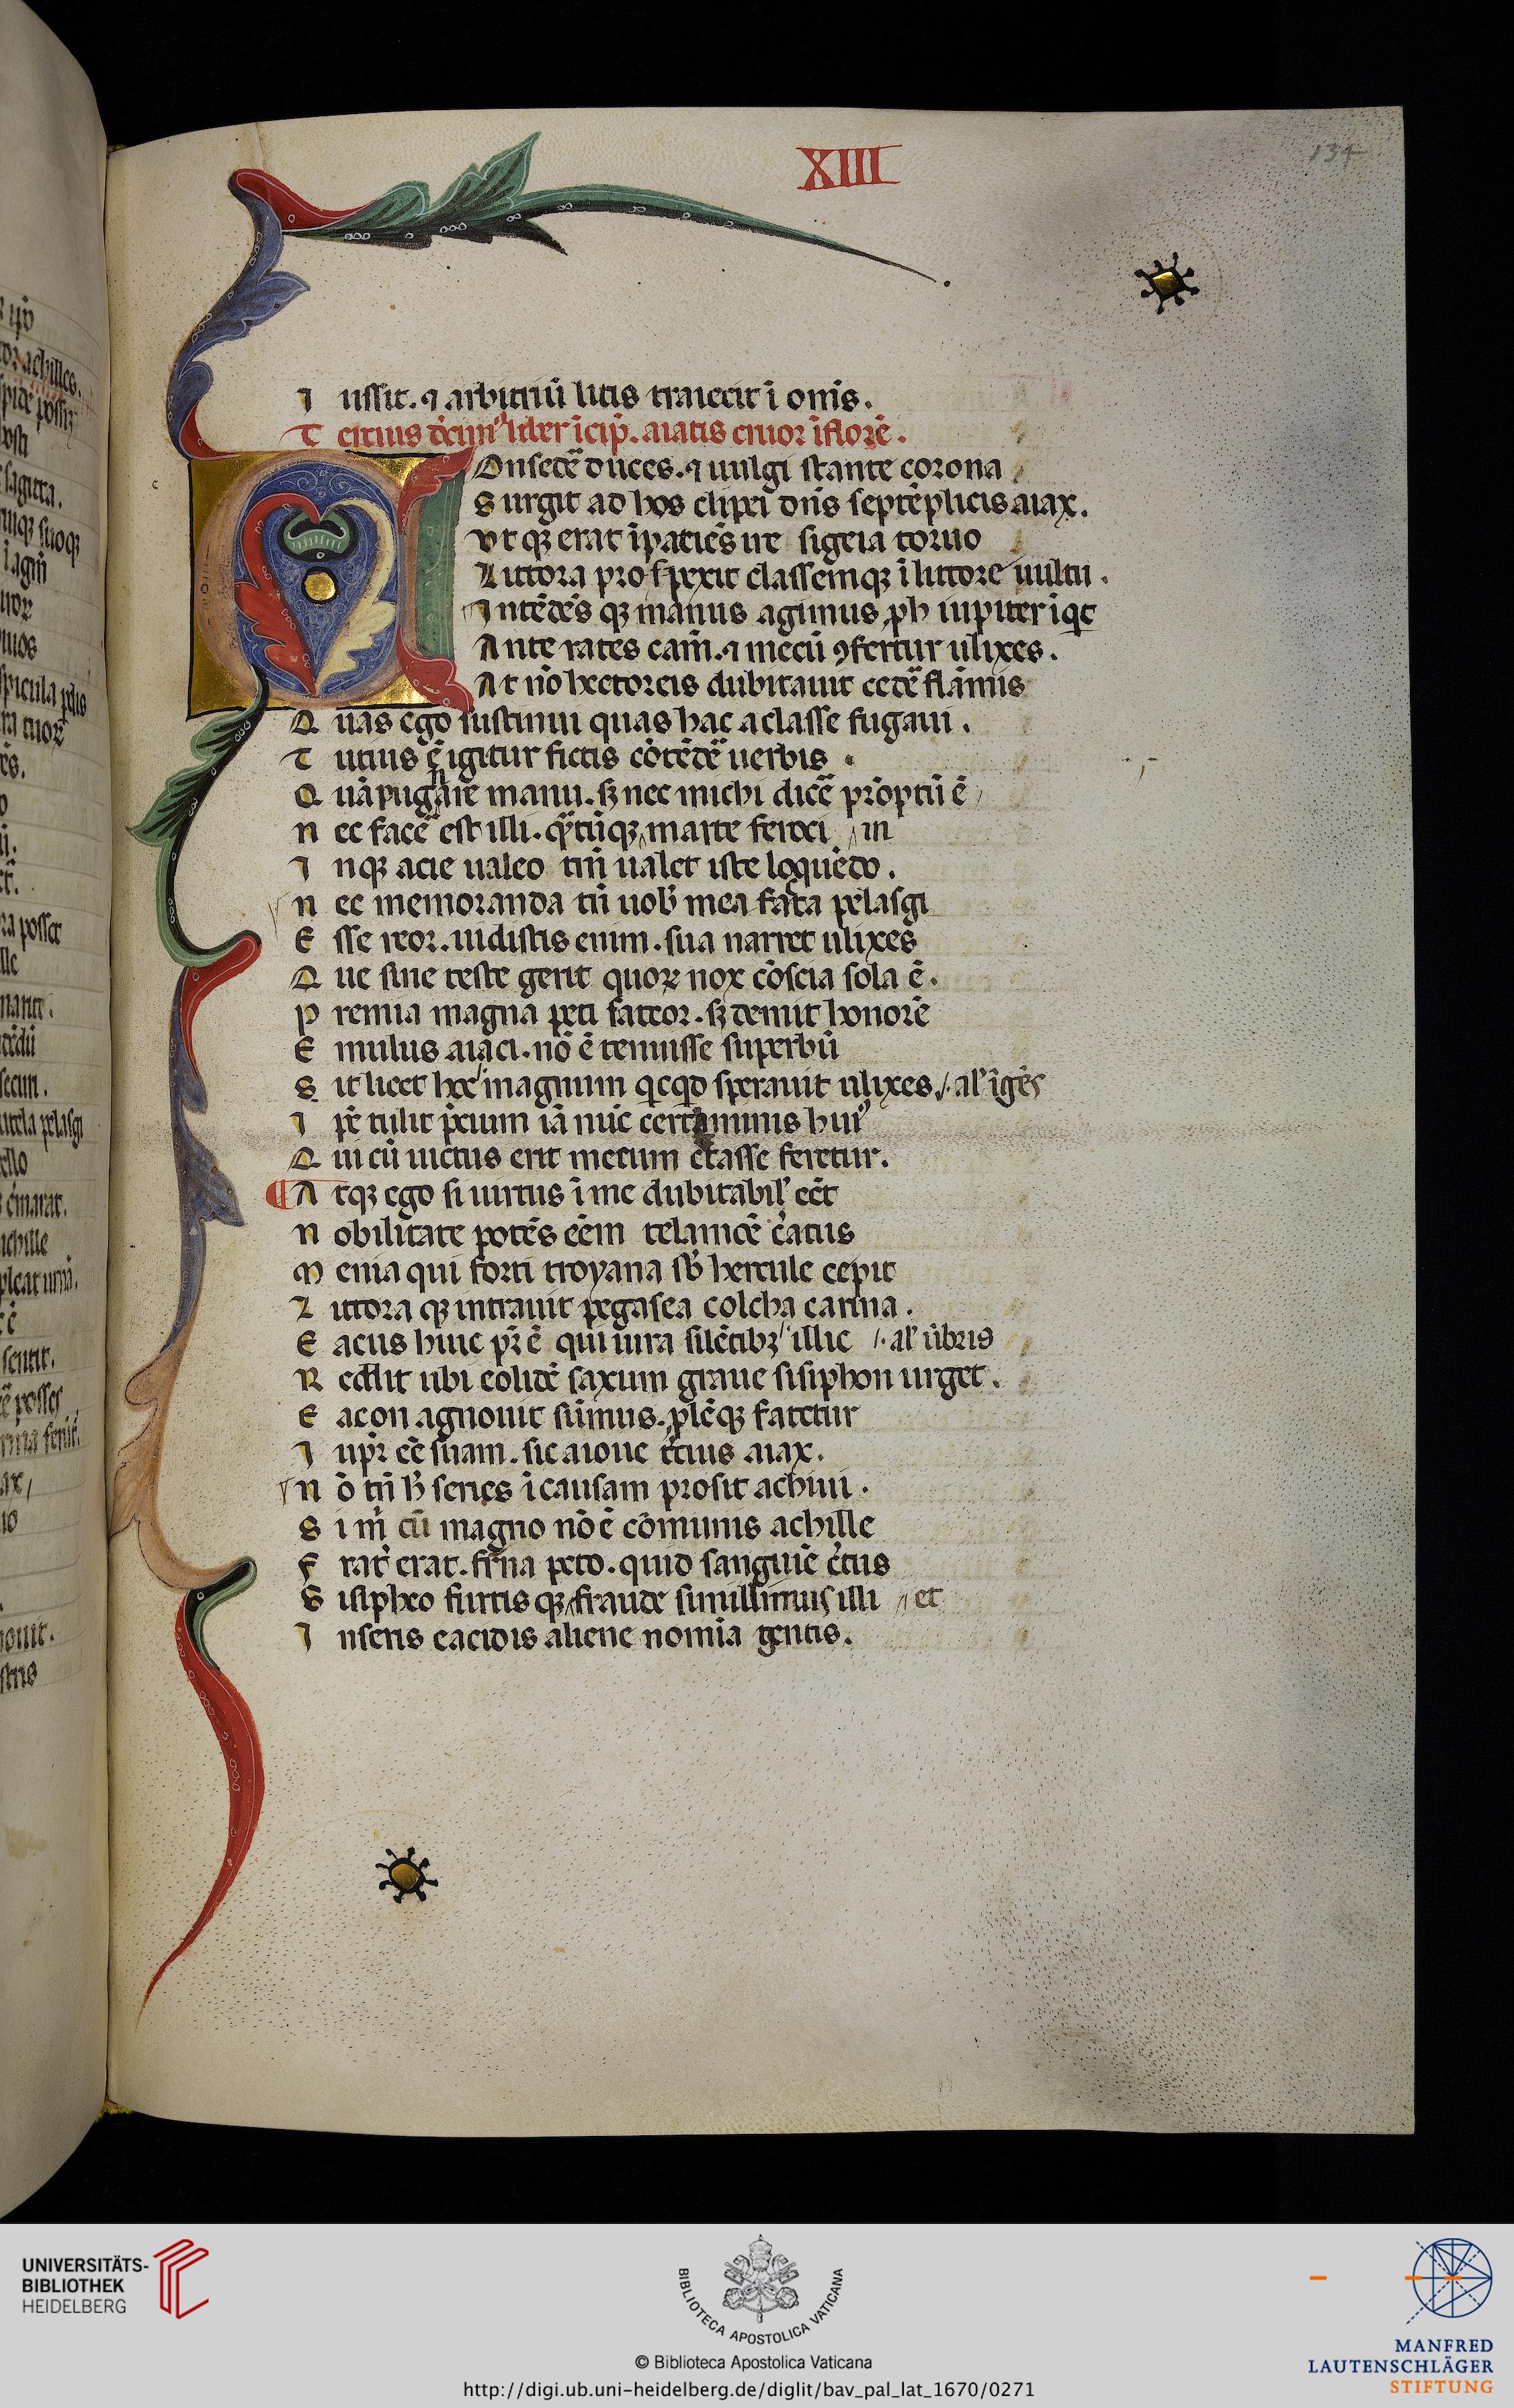 XIII
134
I ussit. ⁊ arbitriũ litis traiecit ĩ om̃s.
T ercius decim⁹ liber ĩcip̃.
Onsedẽ duces. ⁊ uulgi stante corona
S urgit ad hos clipei dñs septẽplicis aiax.
Vt qꝫ erat ĩpaciẽs ire sigeia toruo
Littora prospexit classemqꝫ ĩ littore uultu.
Intẽdẽs qꝫ manus agimus ꝓh iupiter ĩqt
Ante rates cam̃. ⁊ mecũ ꝯfertur ulixes.
At nõ hectoreis dubitauit cedẽ flãmis
Q uas ego sustinui quas hac a classe fugaui.
T utius ẽ igitur fictis cõtẽdẽ uerbis
Q uã pugnare manu. sꝫ nec michi dicẽ prõptũ ẽ
N ec facẽ est illi. qᷓtũqꝫ marte feroci in
I nqꝫ acie ualeo tm̃ ualet iste loquẽdo.
N ec memoranda tñ uob̃ mea facta pelasgi
E sse reor. uidistis enim. sua narret ulixes
Q ue sine teste gerit quoꝝ nox cõscia sola ẽ.
P remia magna peti fateor. sꝫ demit honorẽ
E mulus aiaci. nõ ẽ tenuisse superbũ
S it licet hoc magnum qcqd sperauit ulixes. al' ĩgẽs
I ste tulit p̃cium iã nũc certaminis hui⁹
Q ui cũ uictus erit mecum certasse feretur.
A tqꝫ ego si uirtus ĩ me dubitabil' eẽt
N obilitate potẽs eẽm telamõẽ c̃atus
M enia qui forti troyana sb̃ hercule cepit
L ittora qꝫ intrauit pegasea colcha carina.
E acus huic pr̃ ẽ qui iura silẽtibꝫ illic al' ũbris
R eddit ubi eolidẽ saxum graue sisiphon urget.
E acon agnouit sũmus. ꝓlẽqꝫ fatetur
I upr̃ eẽ suam. sic a ioue t̃cius aiax.
N õ tñ h̃ series ĩ causam prosit achiui.
S i m̃ cũ magno nõ ẽ cõmunis achille
F rat̃ erat. fr̃na peto. quid sanguĩe c̃tus
S isipheo furtis qꝫ fraude simillimus illi et
I nseris eacidis aliene nomĩa gentis.
UNIVERSITÄTS-
BIBLIOTHEK
HEIDELBERG
BIBLIOTECA APOSTOLICA VATICANA
© Biblioteca Apostolica Vaticana
http://digi.ub.uni-heidelberg.de/diglit/bav_pal_lat_1670/0271
MANFRED
LAUTENSCHLÄGER
STIFTUNG